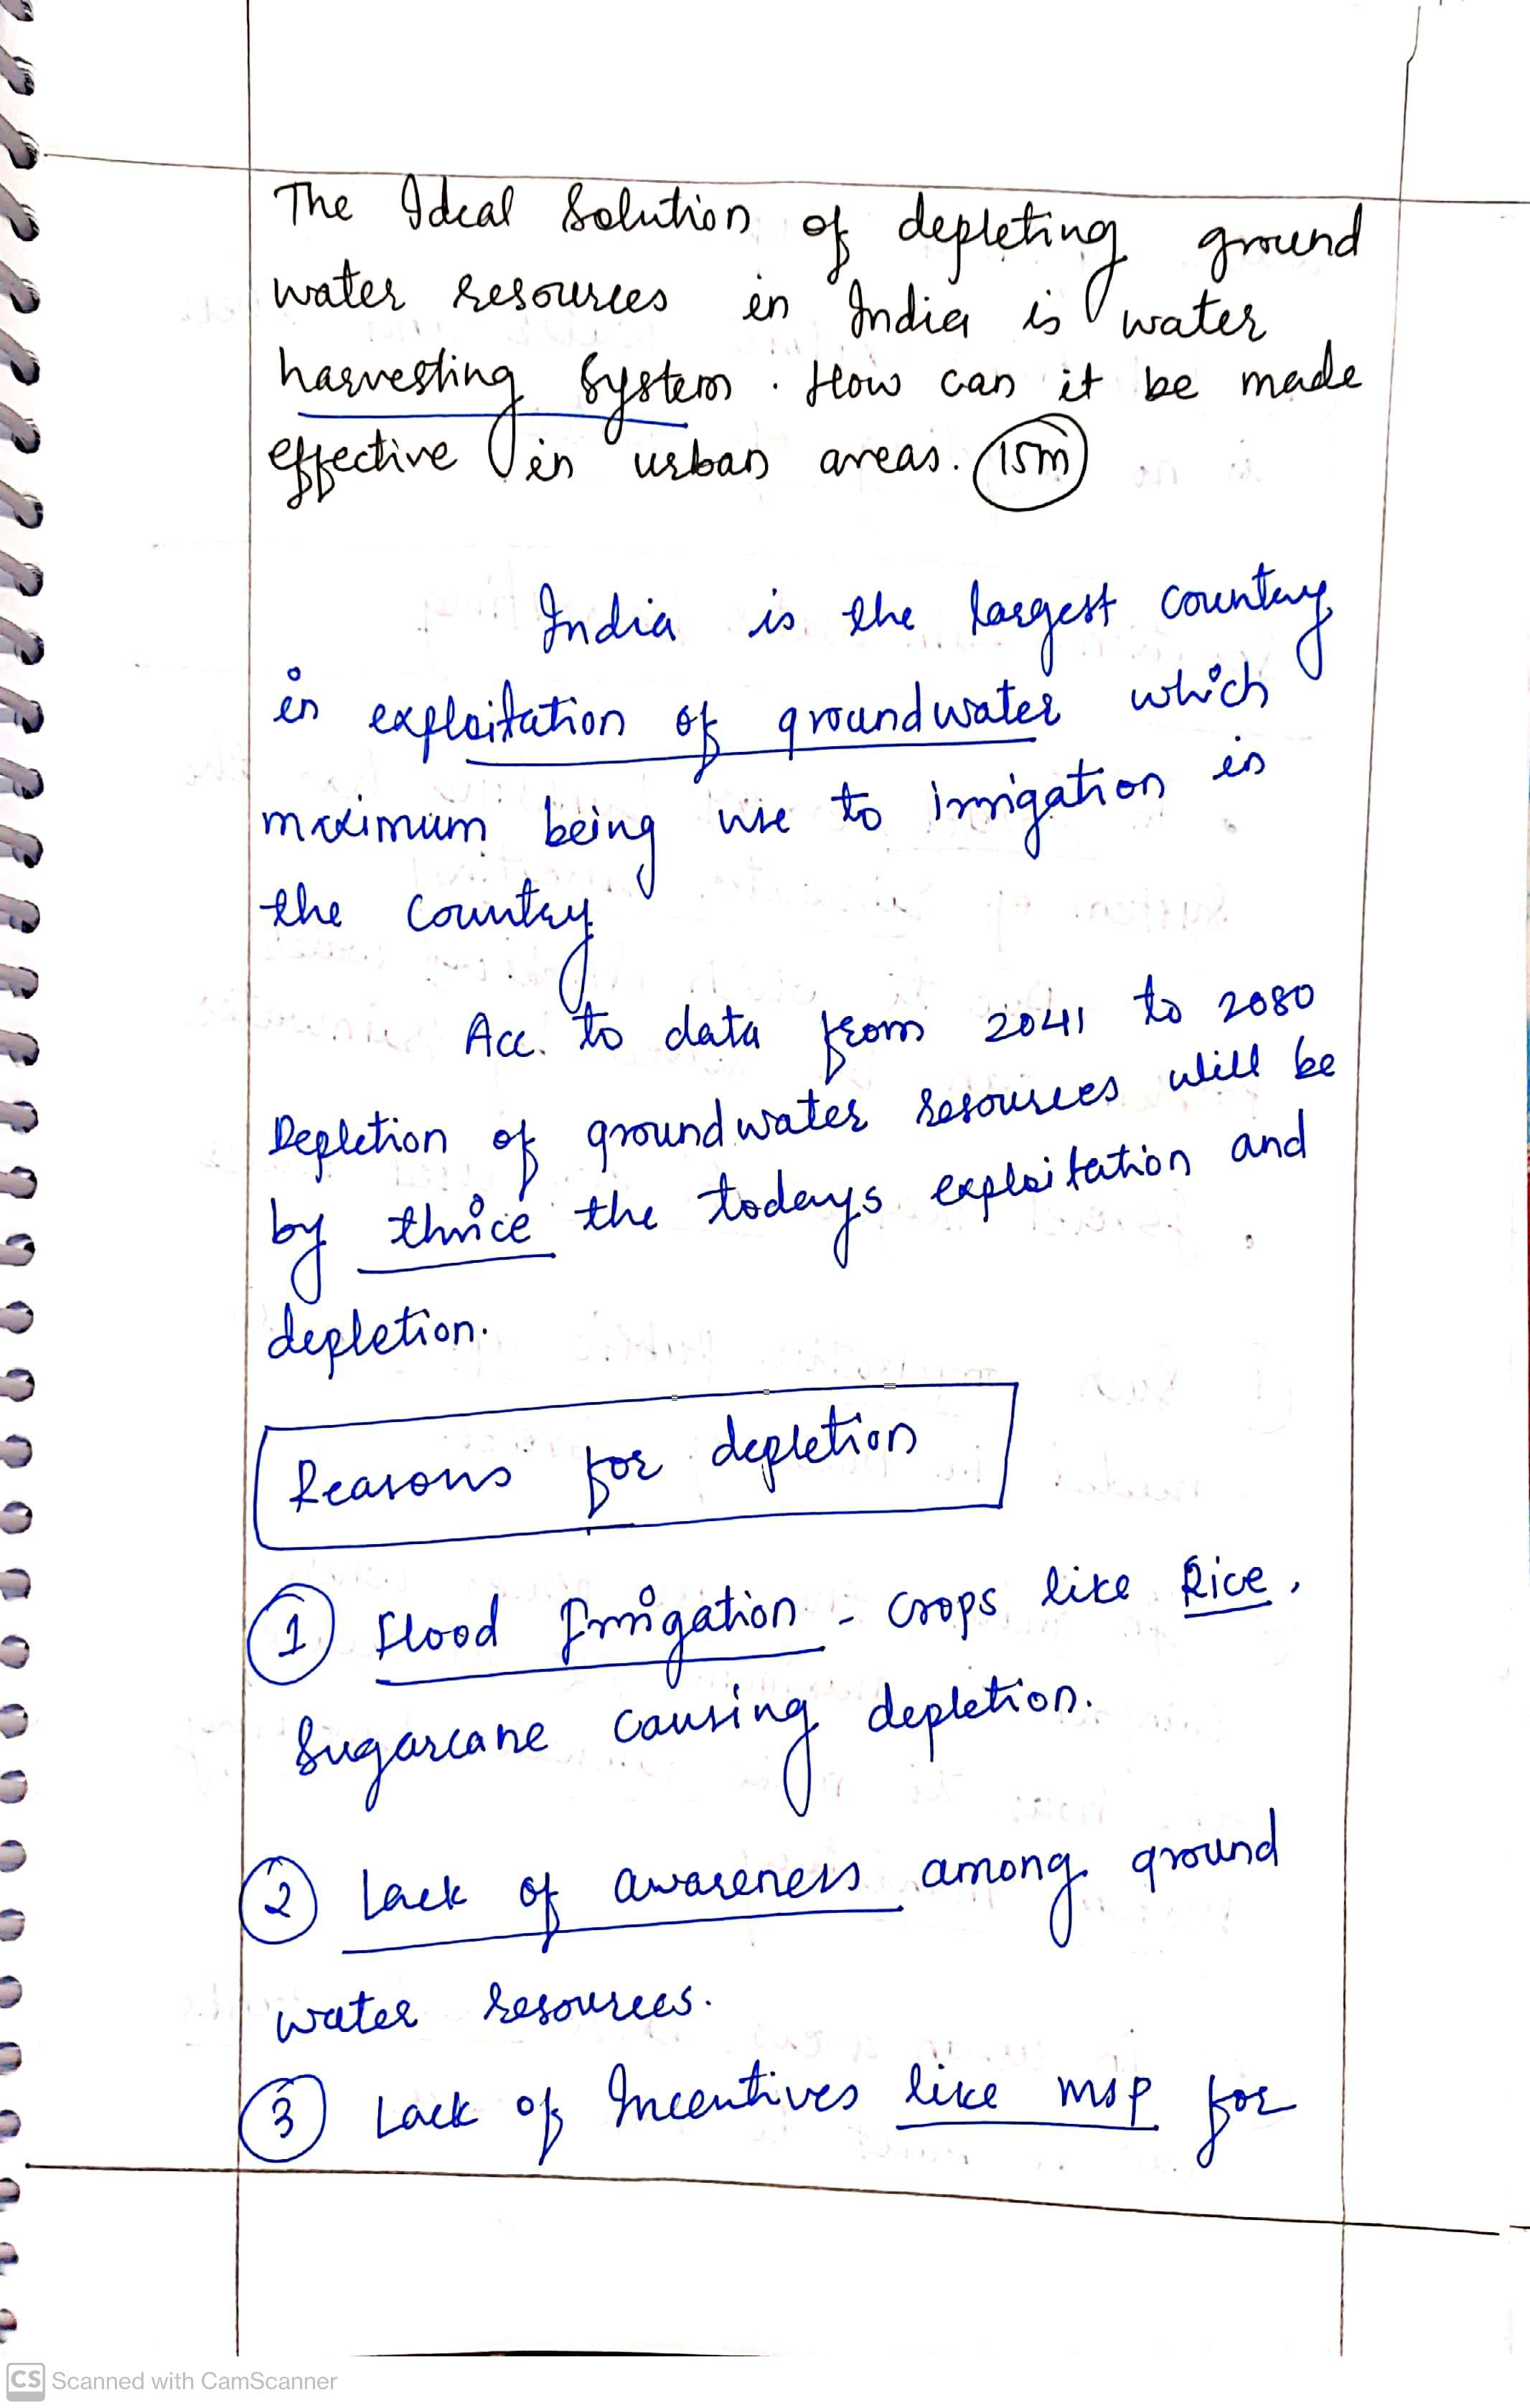 The Ideal Solution of depleting ground
water resources in India is water
harvesting System. How can it be made
effective in urban areas. (15m)
India is the largest country
in exploitation of groundwater which
maximum being use to irrigation in
the country
Acc. to data from 2041 to 2080
Depletion of groundwater resources will be
by thrice the todays exploitation and
depletion.
Reasons for depletion
1 Flood Irrigation - crops like Rice,
Sugarcane causing depletion.
2 Lack of awareness among ground
water resources.
3 Lack of Incentives like MSP for
CS Scanned with CamScanner